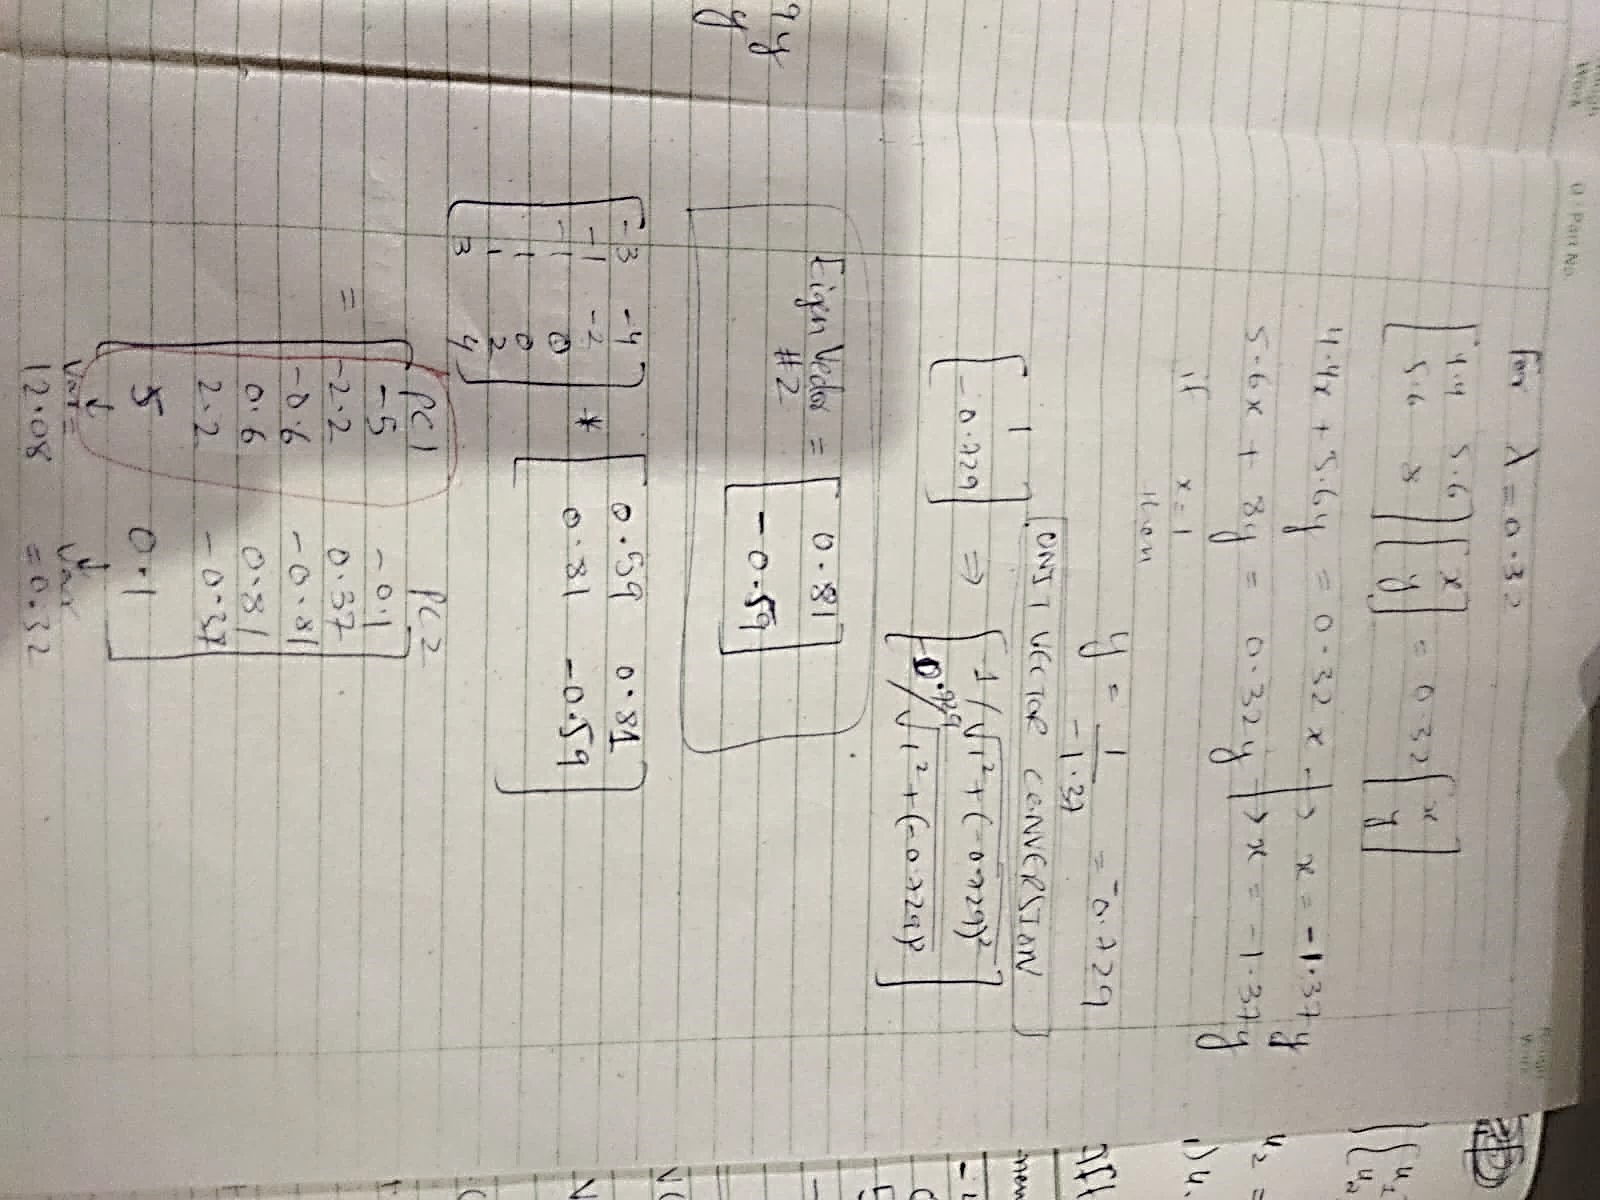 For λ = 0.32
[4.4 5.6
5.6 8] [x
y] = 0.32 [x
y]
4.4x + 5.6y = 0.32x → x = -1.37y
5.6x + 8y = 0.32y → x = -1.37y
if x = 1
then
y = 1/-1.37 = -0.729
UNIT VECTOR CONVERSION
[1
-0.729] ⇒ [1/√1²+(-0.729)²
-0.729/√1²+(-0.729)²]
Eigen Vector = [0.81
#2 -0.59]
[-3 -4
-1 -2
-1 0
1 0
1 2
3 4] * [0.59 0.81
0.81 -0.59]
PC1 PC2
= [-5 -0.1
-2.2 0.37
-0.6 -0.81
0.6 0.81
2.2 -0.37
5 0.1]
Var = ↓ Var ↓
12.08 = 0.32
9y
y
Part No.